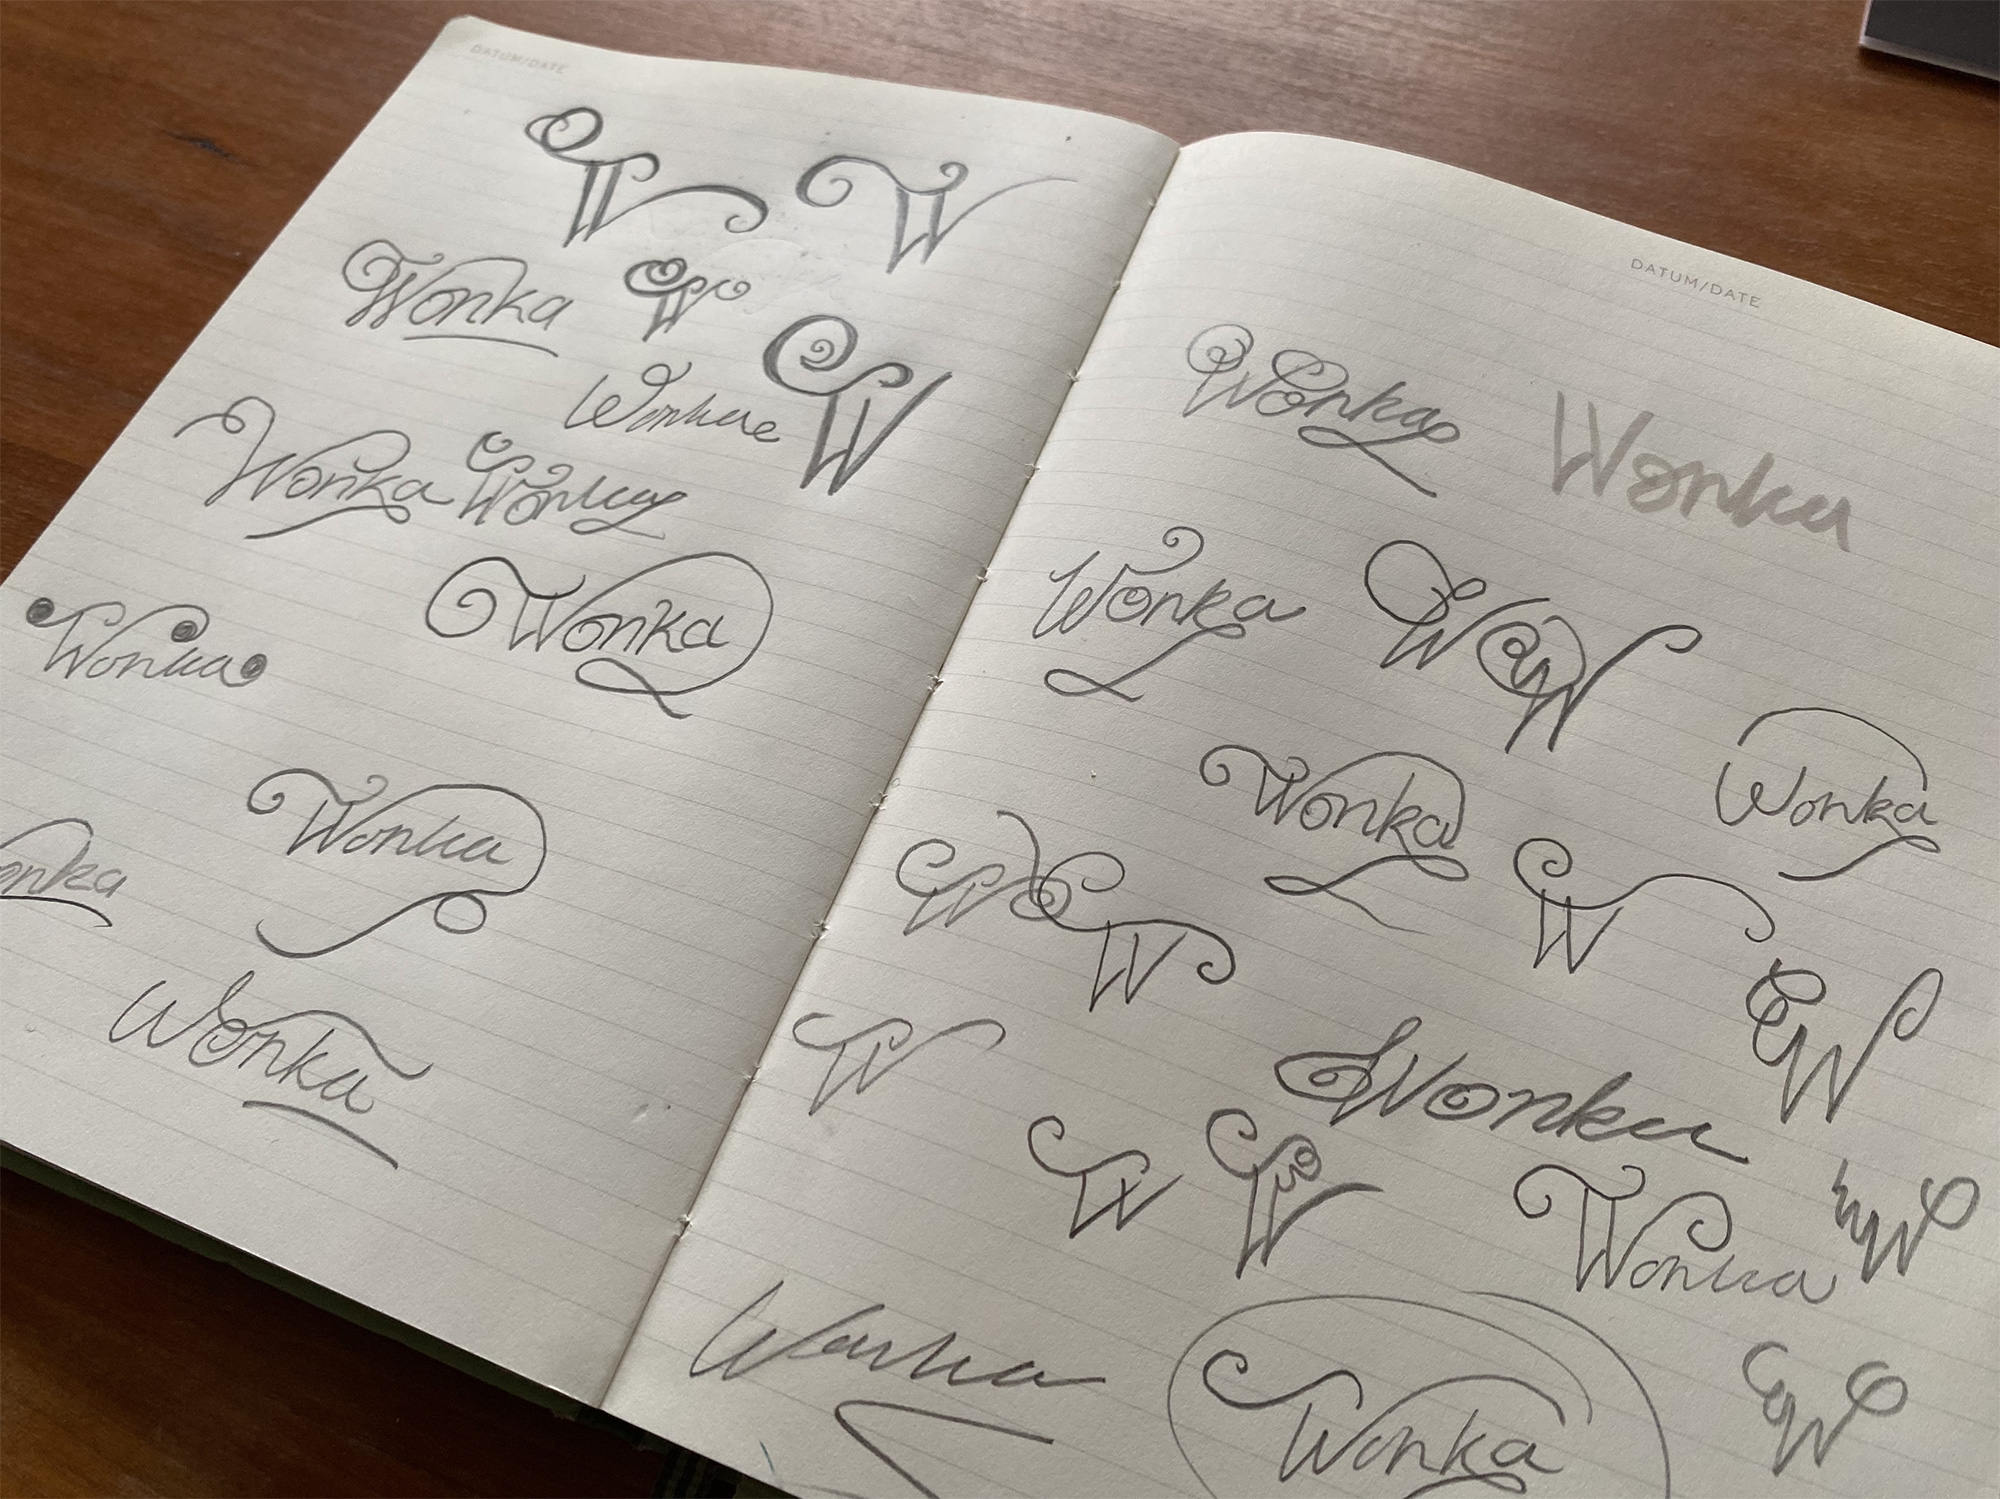 DATUM/DATE
W W
Wonka W
W
Wonka Wonka
Wonka Wonka
Wonka
onka
Wonka
DATUM/DATE
Wonka Wonka
Wonka W
W
Wonka Wonka
W W
W
W
W Wonka
W W Wonka W
Wonka
Wonka W